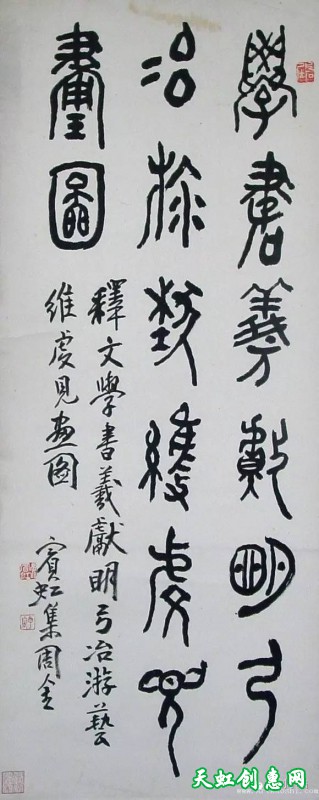 學書羲獻明弓
冶游藝維虔見
畫圖
釋文學書羲獻明弓冶游藝
維虔見畫圖
賓虹集周金
天虹创意网